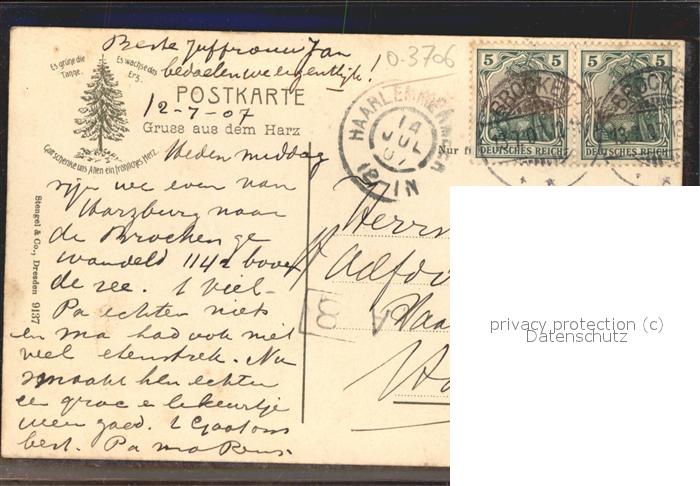 Beste Juffrouw Jan
bedoelen we eigentlijk!
0-3706
Es grüne die
Tanne,
Es wachse das
Erz,
Gott schenke uns Allen ein fröhliches Herz.
POSTKARTE
12-7-07
Gruss aus dem Harz
Heden middag
zijn we even van
Harzburg naar
de Brocken ge
wandeld 1142 boven
de zee. 't viel
Pa echten niets
en ma had ook niet
veel etenstrek. Nu
smaakt hen echter
een groc e likeurtje
weer goed. 't Gaat ons
best. Pa ma Rens.
Stengel & Co., Dresden 9137
HAARLEMMERMEER
14
JUL
07
12-1N
Nur f
5 5
DEUTSCHES REICH
5 5
DEUTSCHES REICH
BROCKEN
BROCKEN
Herrn
Haa
A
8
privacy protection (c)
Datenschutz